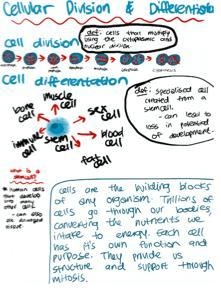 Cellular Division & Differentiatio
def: cells that multiply
using the cytoplasmic and
nuclear division
cell division
cell differentiation
def: specialised cell
created from a
stem cell.
- can lead to
loss in potential
of development.
muscle
cell
bone
cell
sex
cell
immune
cell
stem
cell
blood
cell
fat
cell
what is a
stem cell?
human cells
that develop
into many
other cells
- can also
fix damaged
tissue
cells are the building blocks
of any organism. Trillions of
cells go through our bodies
converting the nutrients we
intake to energy. Each cell
has it's own function and
purpose. They provide us
structure and support through
mitosis.